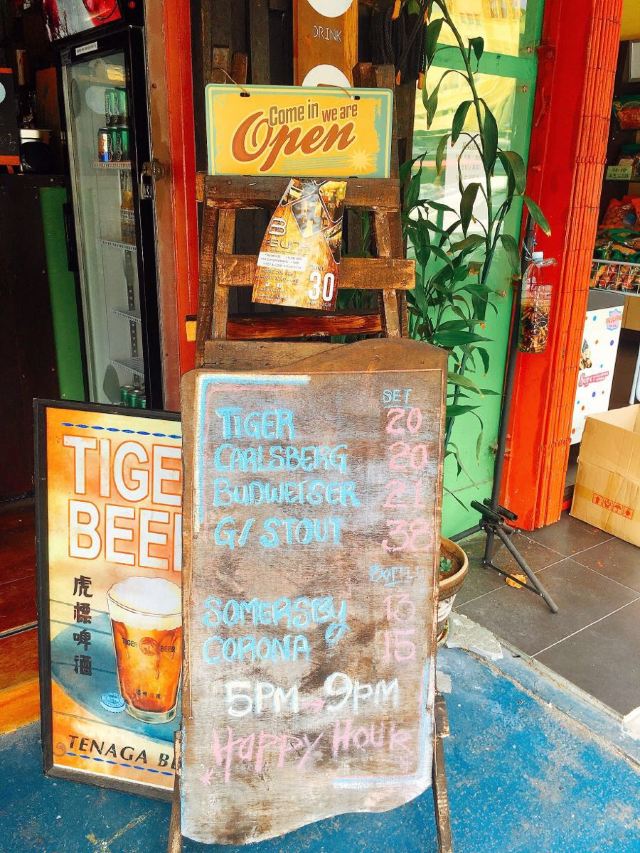 DRINK
Come in we are
Open
30
SET
TIGER 20
CARLSBERG 20
BUDWEISER 21
G/STOUT 38
BOTTLE
SOMERSBY 13
CORONA 15
5PM - 9PM
Happy Hour
TIGE
BEE
虎標啤酒
TIGER BEER
TENAGA